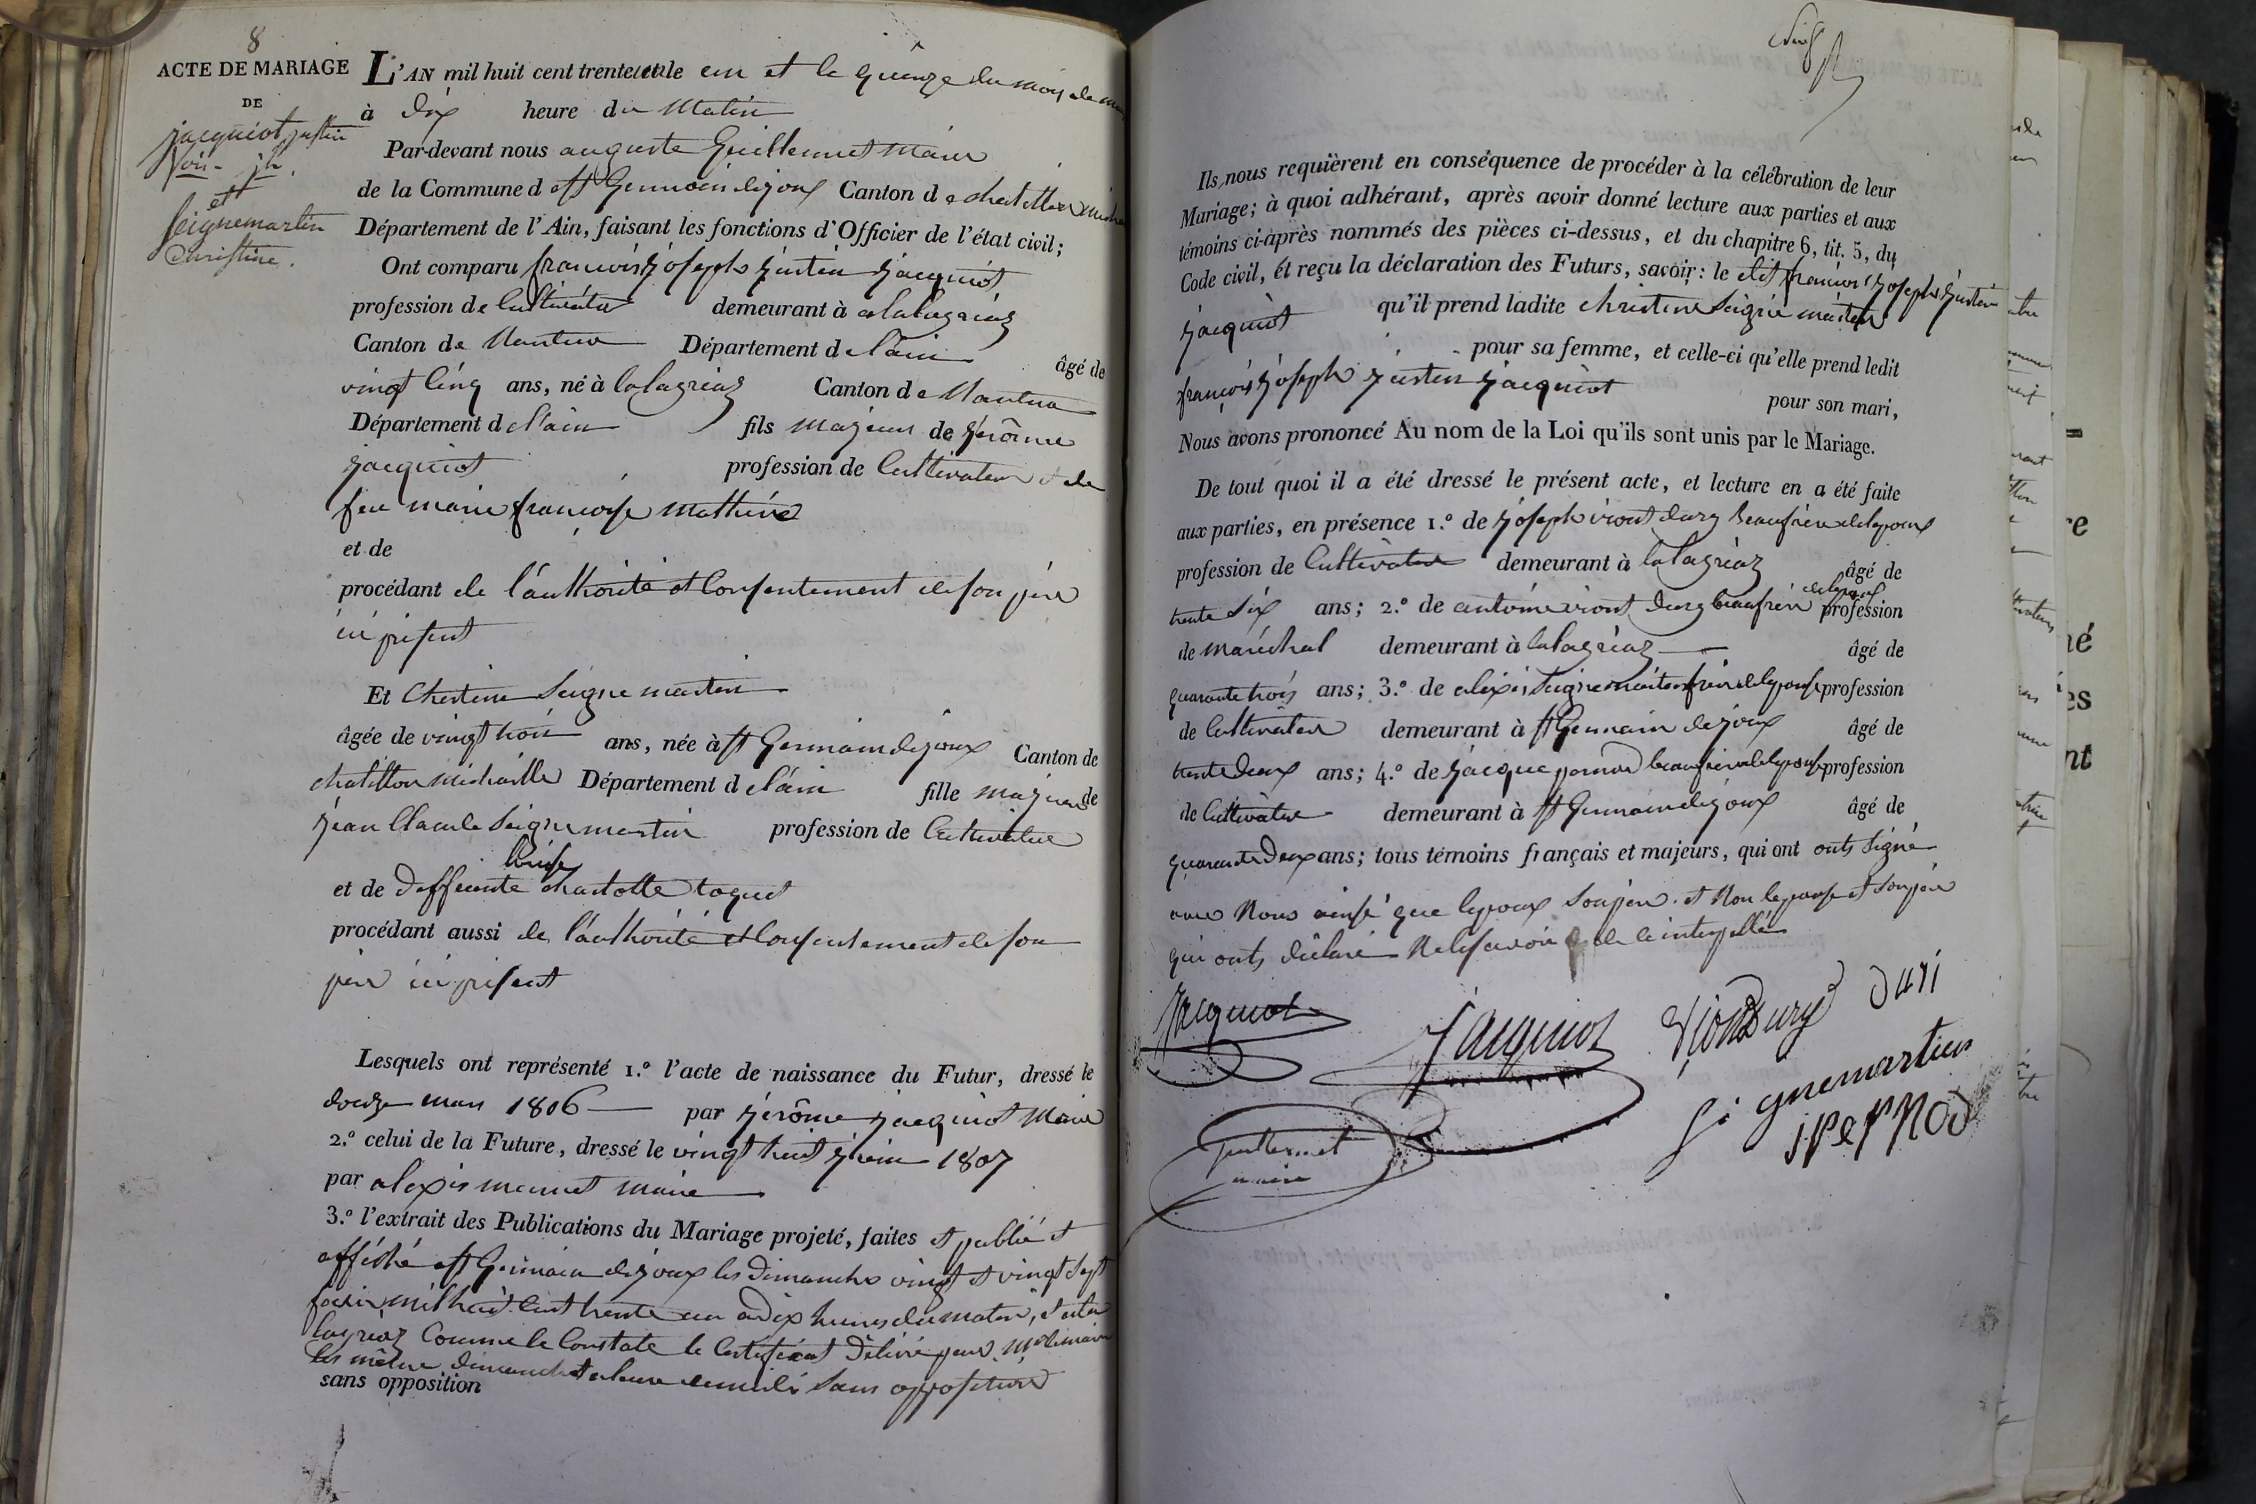 8
ACTE DE MARIAGE
DE
jacquiot justin
et
Seignemartin
Christine.
L'AN mil huit cent trente et le un et le quinze du mois de
à dix heure du Matin
Par-devant nous auguste Guillermet Maire
de la Commune d e St Germain dejoux Canton d e chatillon
Département de l'Ain, faisant les fonctions d'Officier de l'état civil;
Ont comparu françois joseph justin jacquiot
profession de Cultivateur demeurant à alalagriaz
Canton de Nantua Département d e l'ain âgé de
vingt Cinq ans, né à lalagriaz Canton d e Nantua
Département d e l'ain fils majeur de jérôme
jacquiot profession de Cultivateur et de
feu marie françoise
et de
procédant de l'authorité et Consentement de son père
ici présent
Et Christine Seigne martin
âgée de vingt trois ans, née à St Germain dejoux Canton de
chatillon michaille Département d e l'ain fille majeure de
jean Claude Seigne martin profession de Cultivateur
louise
et de deffunte charlotte toquet
procédant aussi de l'authorité et Consentement de son
père ici présent
Lesquels ont représenté 1.º l'acte de naissance du Futur, dressé le
douze mars 1806 par jérôme jacquiot Maire
2.º celui de la Future, dressé le vingt huit juin 1807
par alexis mermet maire
3.º l'extrait des Publications du Mariage projeté, faites et publié et
affiché a St Germain dejoux les dimanche vingt et vingt sept
mil huit cent trente un a dix heures du matin, et a la
lagriaz Comme le Constate le Certificat Délivré par Mr le maire
les même dimanche et a heure sans opposition
sans opposition
Ils nous requièrent en conséquence de procéder à la célébration de leur
Mariage; à quoi adhérant, après avoir donné lecture aux parties et aux
témoins ci-après nommés des pièces ci-dessus, et du chapitre 6, tit. 5, du
Code civil, et reçu la déclaration des Futurs, savoir: le dit françois joseph justin
jacquiot qu'il prend ladite christine Seigne martin
pour sa femme, et celle-ci qu'elle prend ledit
françois joseph justin jacquiot pour son mari,
Nous avons prononcé Au nom de la Loi qu'ils sont unis par le Mariage.
De tout quoi il a été dressé le présent acte, et lecture en a été faite
aux parties, en présence 1.º de joseph viont dury Beaufrère de lepoux
profession de Cultivateur demeurant à lalagriaz âgé de
de lepoux
trente six ans; 2.º de antoine viont dury beaufrère profession
de maréchal demeurant à lalagriaz âgé de
quarante trois ans; 3.º de alexis Seignemartin frère de lepouse profession
de Cultivateur demeurant à St Germain dejoux âgé de
trente deux ans; 4.º de jacque pernod beaufrère de lepouse profession
de Cultivateur demeurant à St Germain dejoux âgé de
quarante deux ans; tous témoins français et majeurs, qui ont onts signé
avec Nous ainsi que lepoux son père et Non lepouse et son père
qui onts déclaré Ne le savoir de ce interpellés
Jacquiot
Jacquiot
viont Dury
Duri
Guillermet
maire
Si gnemartin
j Pernod